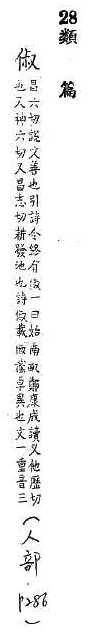 28類篇
俶
昌六切說文善也引詩令終有俶一曰始
也又神六切又昌志切耕發地也詩俶載
南畝鄭康成讀又他歷切
俶儻卓異也文一重音三
(人部 p286)